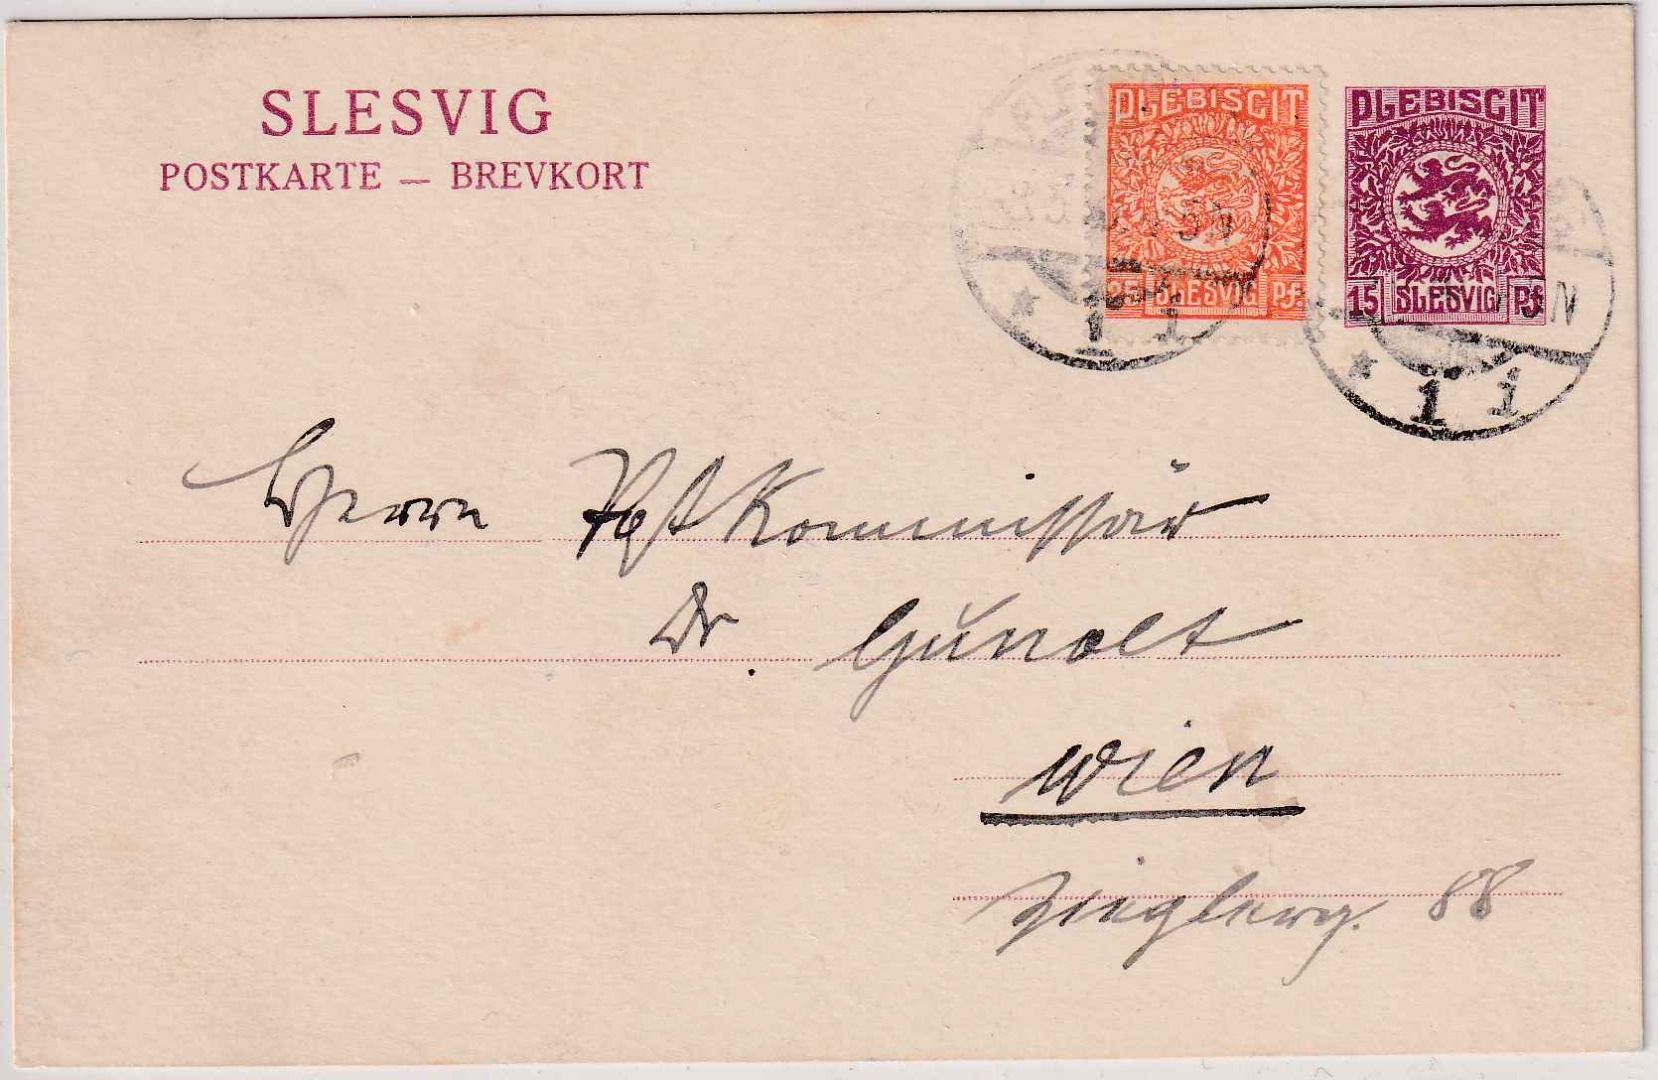 SLESVIG
POSTKARTE — BREVKORT
PLEBISCIT
25 SLESVIG Pf.
PLEBISCIT
15 SLESVIG Pf.
* 1 i
* 1 i
Herrn Post Kommissär
Dr. Gunolt
Wien
88